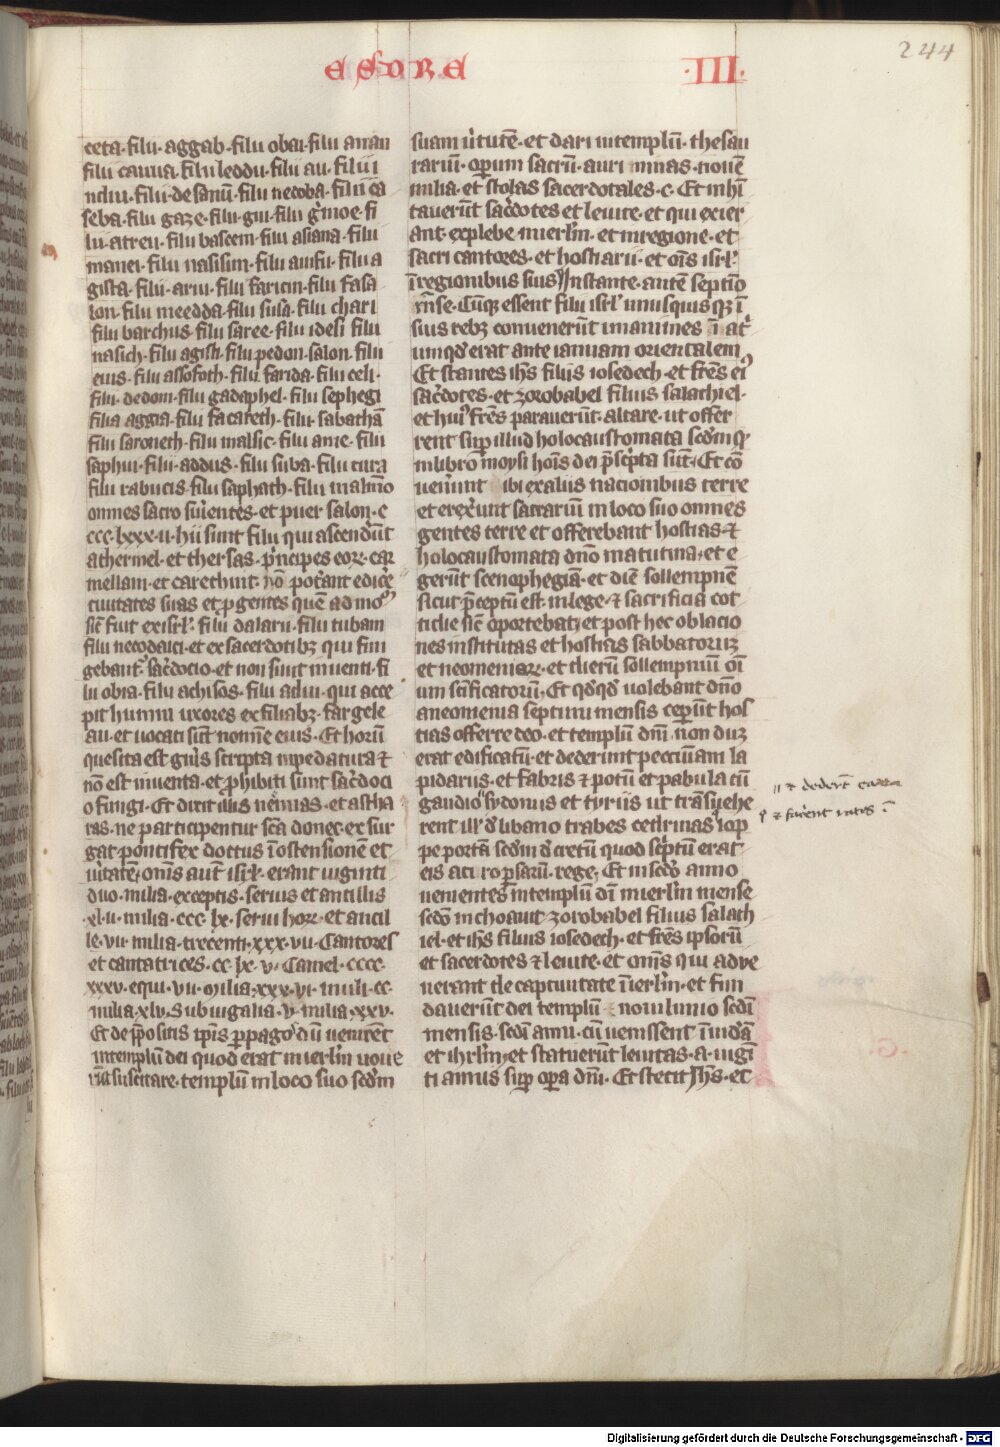 esdre
·III·
244
ceta·filii·aggab·filii obai·filii anani
filii canna·filii leddu·filii an·filii i
nchu·filii·desanū·filii necoba·filii ca
seba·filii gaze·filii·gui·filii g̾moe·fi
lii·atreu·filii basēem·filii asiana·filii
manei·filii nasisim·filii aiufu·filii a
gista·filii·ariu·filii farien·filii fasa
lon·filii meedda·filii susa·filii chari
filii barchus·filii saree·filii idesi filii
nasich·filii agisti·filii pedon·salon·filii
eius·filii assofoth·filii farida·filii celi·
filii·dedom·filii gadaphel·filii sephegi
filia aggia·filii facareth·filii·sabathā
filii saroneth·filii malsic·filii ame·filii
saphui·filii·addus·filii suba·filii cura
filii rabucis·filii saphath·filii malmō
omnes sacro suientes·et puer salon·c
ccc·lxxx·ii·hii sunt filii qui ascendūt
athermel·et thersas·p̄ncipes eoꝝ·car
mellam·et carethint·nō pot̾ant edic̾e
ciuitates suas et ꝓgentes quē ad moꝰ
sīc fiūt ex isrl̾·filii dalarii·filii tubam
filii necodaici·et ex sacerdotibꝫ qui fun
gebant᷑·sac̾docio·et non sunt inuenti·fi
lii obia·filii achisos·filii adui·qui acce
pit humin uxores ex filiabꝫ·fargele
au·et uocati sūt nomīe eius·Et horū
quesita est gn̄is scripta inpedatura ⁊
nō est inuenta·et ꝓhibiti sunt sac̾doci
o fungi·Et dixit illis neēmias·et astha
ras·ne participentur sc̄a donec exsur
gat pontifex doctus ī ostensionē et
ūitatē·omīs aut̄ isrl̾·erant uiginti
duo·milia·exceptis·seruis et ancillis
xl·ii·milia·ccc·lx·serui hoꝝ·et ancil
le·vii·milia·trecenti·xxx·vii·Cantores
et cantatrices·cc·lx·v·Camel·cccc·
xxxv·equi·vii·milia·xxx·vi·muli·cc·
milia·xlv·Subiugalia·v·milia·xxv·
Et de p̄positis ip̄is ꝑ pagoꝰ dū uenirēt
in templū dei quod erat in ierl̄m uoue
rūt suscitare·templū in loco suo scd̄m
suam ūtutē·et dari in templū·thesau
rariū·oꝑum sacrū·auri mnas·nouē
milia·et stolas sacerdotales·c·Et inhī
tauerūt sac̾dotes et leuite·et qui exier
ant·ex plebe in ierl̄m·et in regione·et
sacri cantores·et hostiarii·et om̄s isrl̾·
ī regionibus suis Instante·autē septīo
m̄se·Cūqꝫ essent filii isrl̾ unusquisqꝫ ī
suis rebꝫ conuenerūt unanimes ī at̾
um qd̾ erat ante ianuam orientalem
Et stantes ih̄s filius iosedech·et fr̄es eiꝰ
sac̾dotes·et zorobabel filius salathiel·
et huiꝰ fr̄es parauerūt·altare·ut offer
rent suꝑ illud holocaustomata scd̄m q̄
in libro moysi hoīs dei p̄sc̾pta sūt·Et cō
uen̾unt ibi ex aliis nacionibus terre
et erex̾unt sacrariū in loco suo omnes
gentes terre et offerebant hostias ⁊
holocaustomata dn̄o matutina·et e
gerūt scenophegiā·et diē sollempnē
sicut p̄ceptū est·in lege·⁊ sacrificia cot
tidie sīc oportebat·et post hec oblacio
nes institutas et hostias sabbatorum
et neomeniaꝝ·et dierū sollempniū oī
um sc̄ificatorū·Et qd̾qd̾ uolebant dn̄o
a neomenia septimi mensis ceꝑūt hos
tias offerre deo·et templū dn̄i·non duꝫ
erat edificatū·et dederunt pecuniam la
pidariis·et fabris ⁊ potū et pabula cū
gaudio sydoniis et tyriis ut trāsuehe
rent illꝰ d̾ libano trabes cedrinas iop
pe portā scd̄m d̾cretū quod sc̾ptū erat
eis a ciro ꝑsarū·rege·Et in scd̄o anno
uenientes in templū dī in ierl̄m mense
scd̄o inchoauit zorobabel filius salath
iel·et ih̄s filius iosedech·et fr̄es ipsorū
et sacerdotes ⁊ leuite·et om̄s qui adue
nerant de captiuitate ī ierl̄m·et fun
dauerūt dei templū nouilunio scd̄i
mensis·scd̄i anni·cū uenissent ī iudā
et ihrl̄m·et statuerūt leuitas·a·uigī
ti annis suꝑ oꝑa dn̄i·Et stetit Ih̄s·et
⁊ dederūt carra
⁊ fac̾ent rates ī
Digitalisierung gefördert durch die Deutsche Forschungsgemeinschaft - DFG